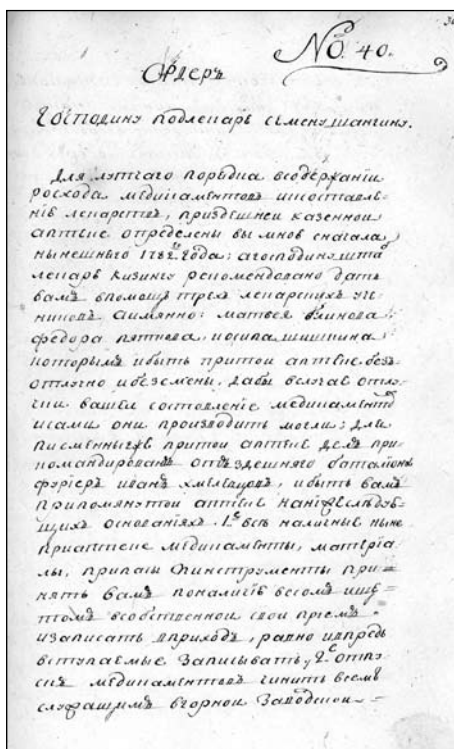 № 40.
Ордеръ
Господину подлекарь Семену шангину.
Для лутчаго порядка всодержаніи
росхода медикаментовъ исоставле-
ніе лекарствъ, приздешнеи казеннои
аптеке определены вы мною сначала
нынешнего 1782го года; агосподину шта
лекарь Кизингу рекомендовано дать
вамъ впомощъ трехъ лекарскихъ уче-
никовъ, Аимянно: матвея
федора пяткова, иосипа шишкина
которымъ ибыть притои аптеке безъ
отлучно ибезсмены, дабы вслучае отлу-
чки вашеи составленіе медикаментъ
исами они производить могли; Для
писменныхже притои аптеке делъ при-
командированъ отъздешняго баталіона
фуріеръ иванъ хмелевцовъ, ибыть вамъ
припомянутои аптеке нанижеследую-
щихъ основаніяхъ. 1е всѣ наличные ныне
приаптеке медикаменты, матеріа-
лы, припасы Иинструменты при-
нять вамъ поналичіе весомъ ище-
томъ всобственнои свои пріемъ.
изаписать вприходъ, равно ивпредь
вступаемые записывать, 2е отпу-
скъ медикаментовъ чинить всемъ
служащимъ вгорнои Заводскои